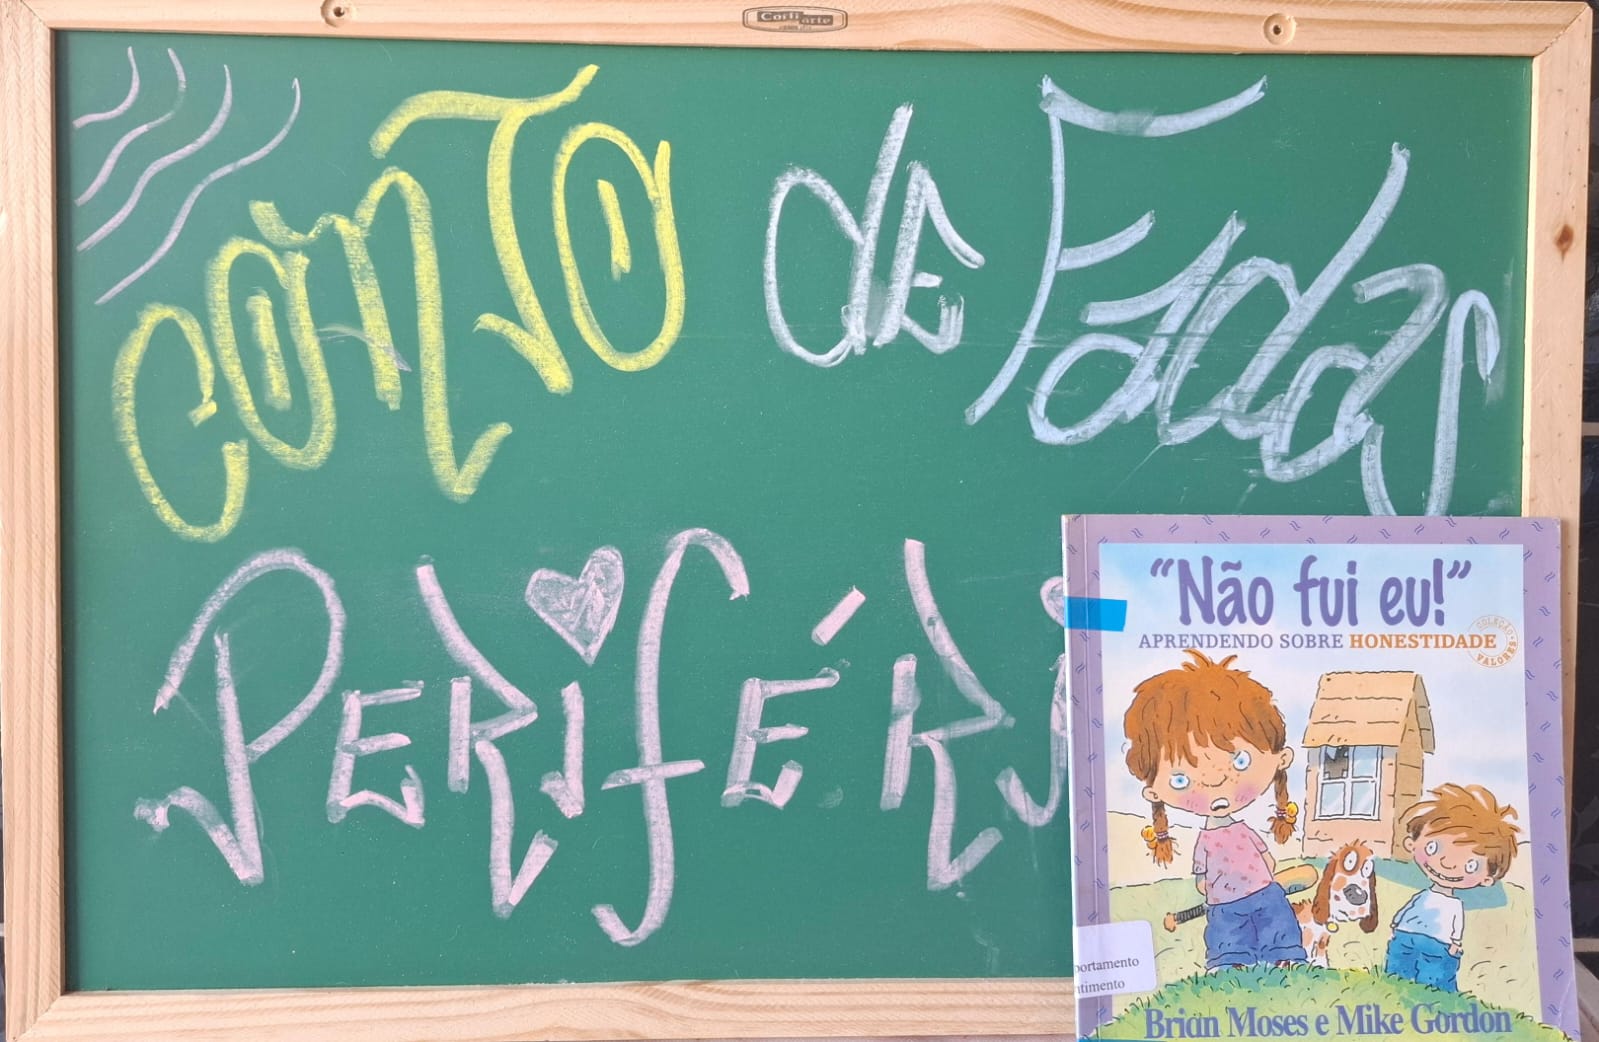 CONTO de Fadas
PERIFÉR
"Não fui eu!"
APRENDENDO SOBRE HONESTIDADE
COLEÇÃO VALORES
portamento
ntimento
Brian Moses e Mike Gordon